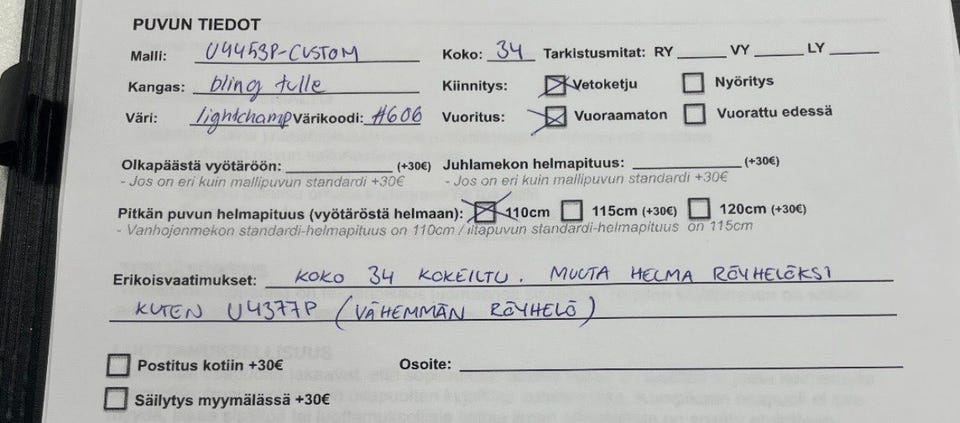 PUVUN TIEDOT
Malli: U4453P-CUSTOM Koko: 34 Tarkistusmitat: RY VY LY
Kangas: bling tulle Kiinnitys: Vetoketju Nyöritys
Väri: lightchamp Värikoodi: #606 Vuoritus: Vuoraamaton Vuorattu edessä
Olkapäästä vyötäröön: (+30€) Juhlamekon helmapituus: (+30€)
- Jos on eri kuin mallipuvun standardi +30€ - Jos on eri kuin mallipuvun standardi +30€
Pitkän puvun helmapituus (vyötäröstä helmaan): 110cm 115cm (+30€) 120cm (+30€)
- Vanhojenmekon standardi-helmapituus on 110cm / iltapuvun standardi-helmapituus on 115cm
Erikoisvaatimukset: KOKO 34 KOKEILTU. MUUTA HELMA RÖYHELÖKSI
KUTEN U4377P (VÄHEMMÄN RÖYHELÖ)
Postitus kotiin +30€ Osoite:
Säilytys myymälässä +30€